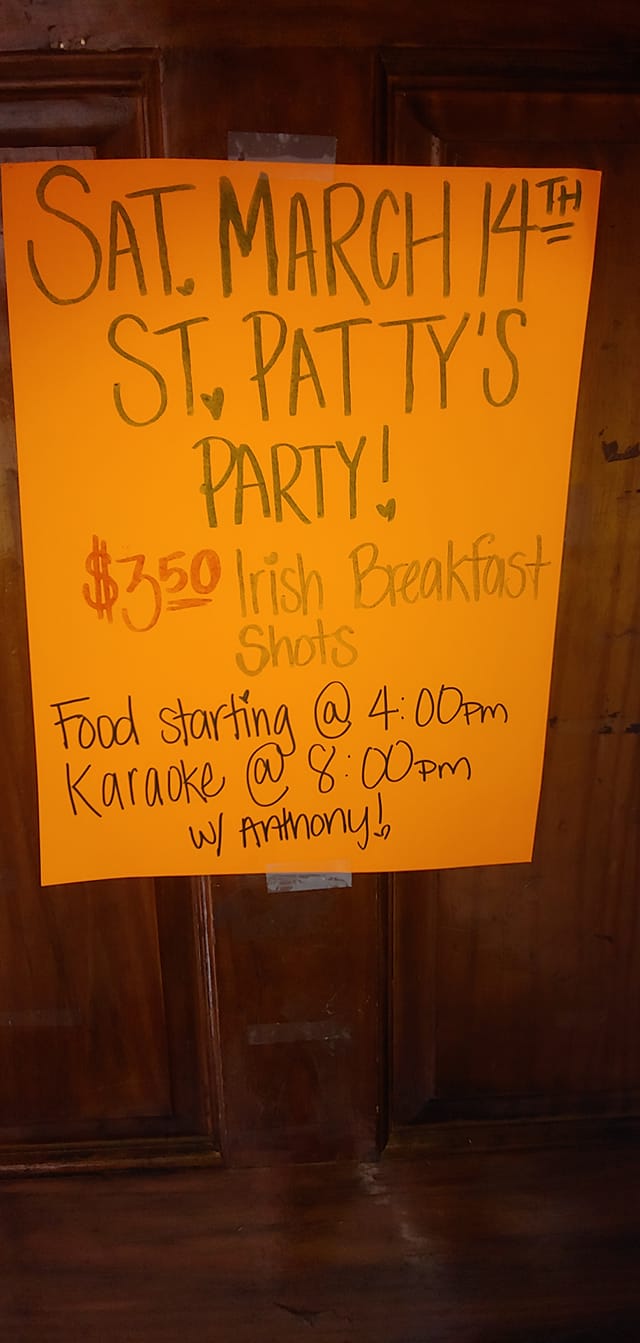 SAT. MARCH 14TH
ST. PATTY'S
PARTY!
$3.50 Irish Breakfast
Shots
Food starting @ 4:00pm
Karaoke @ 8:00pm
w/ Anthony!